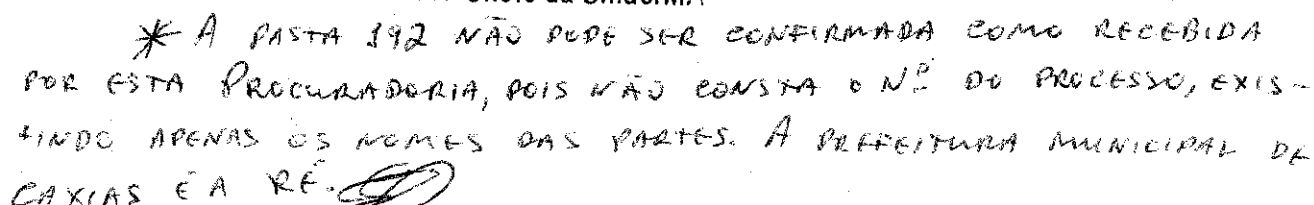 * A PASTA 192 NÃO PODE SER CONFIRMADA COMO RECEBIDA
POR ESTA PROCURADORIA, POIS NÃO CONSTA O Nº DO PROCESSO, EXIS-
TINDO APENAS OS NOMES DAS PARTES. A PREFEITURA MUNICIPAL DE
CAXIAS É A RÉ.